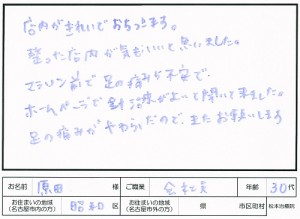 店内がきれいでおちつきます。
整った店内が気もいいと思いました。
マラソン前で足の痛みが不安で、
ホームページで針治療がよいと聞いて来ました。
足の痛みがやわらいだので、またお願いします
お名前 原田 様 ご職業 会社員 年齢 30代
お住まいの地域(名古屋市内の方) 昭和 区 お住まいの地域(名古屋市外の方) 県 市区町村 松本治療院